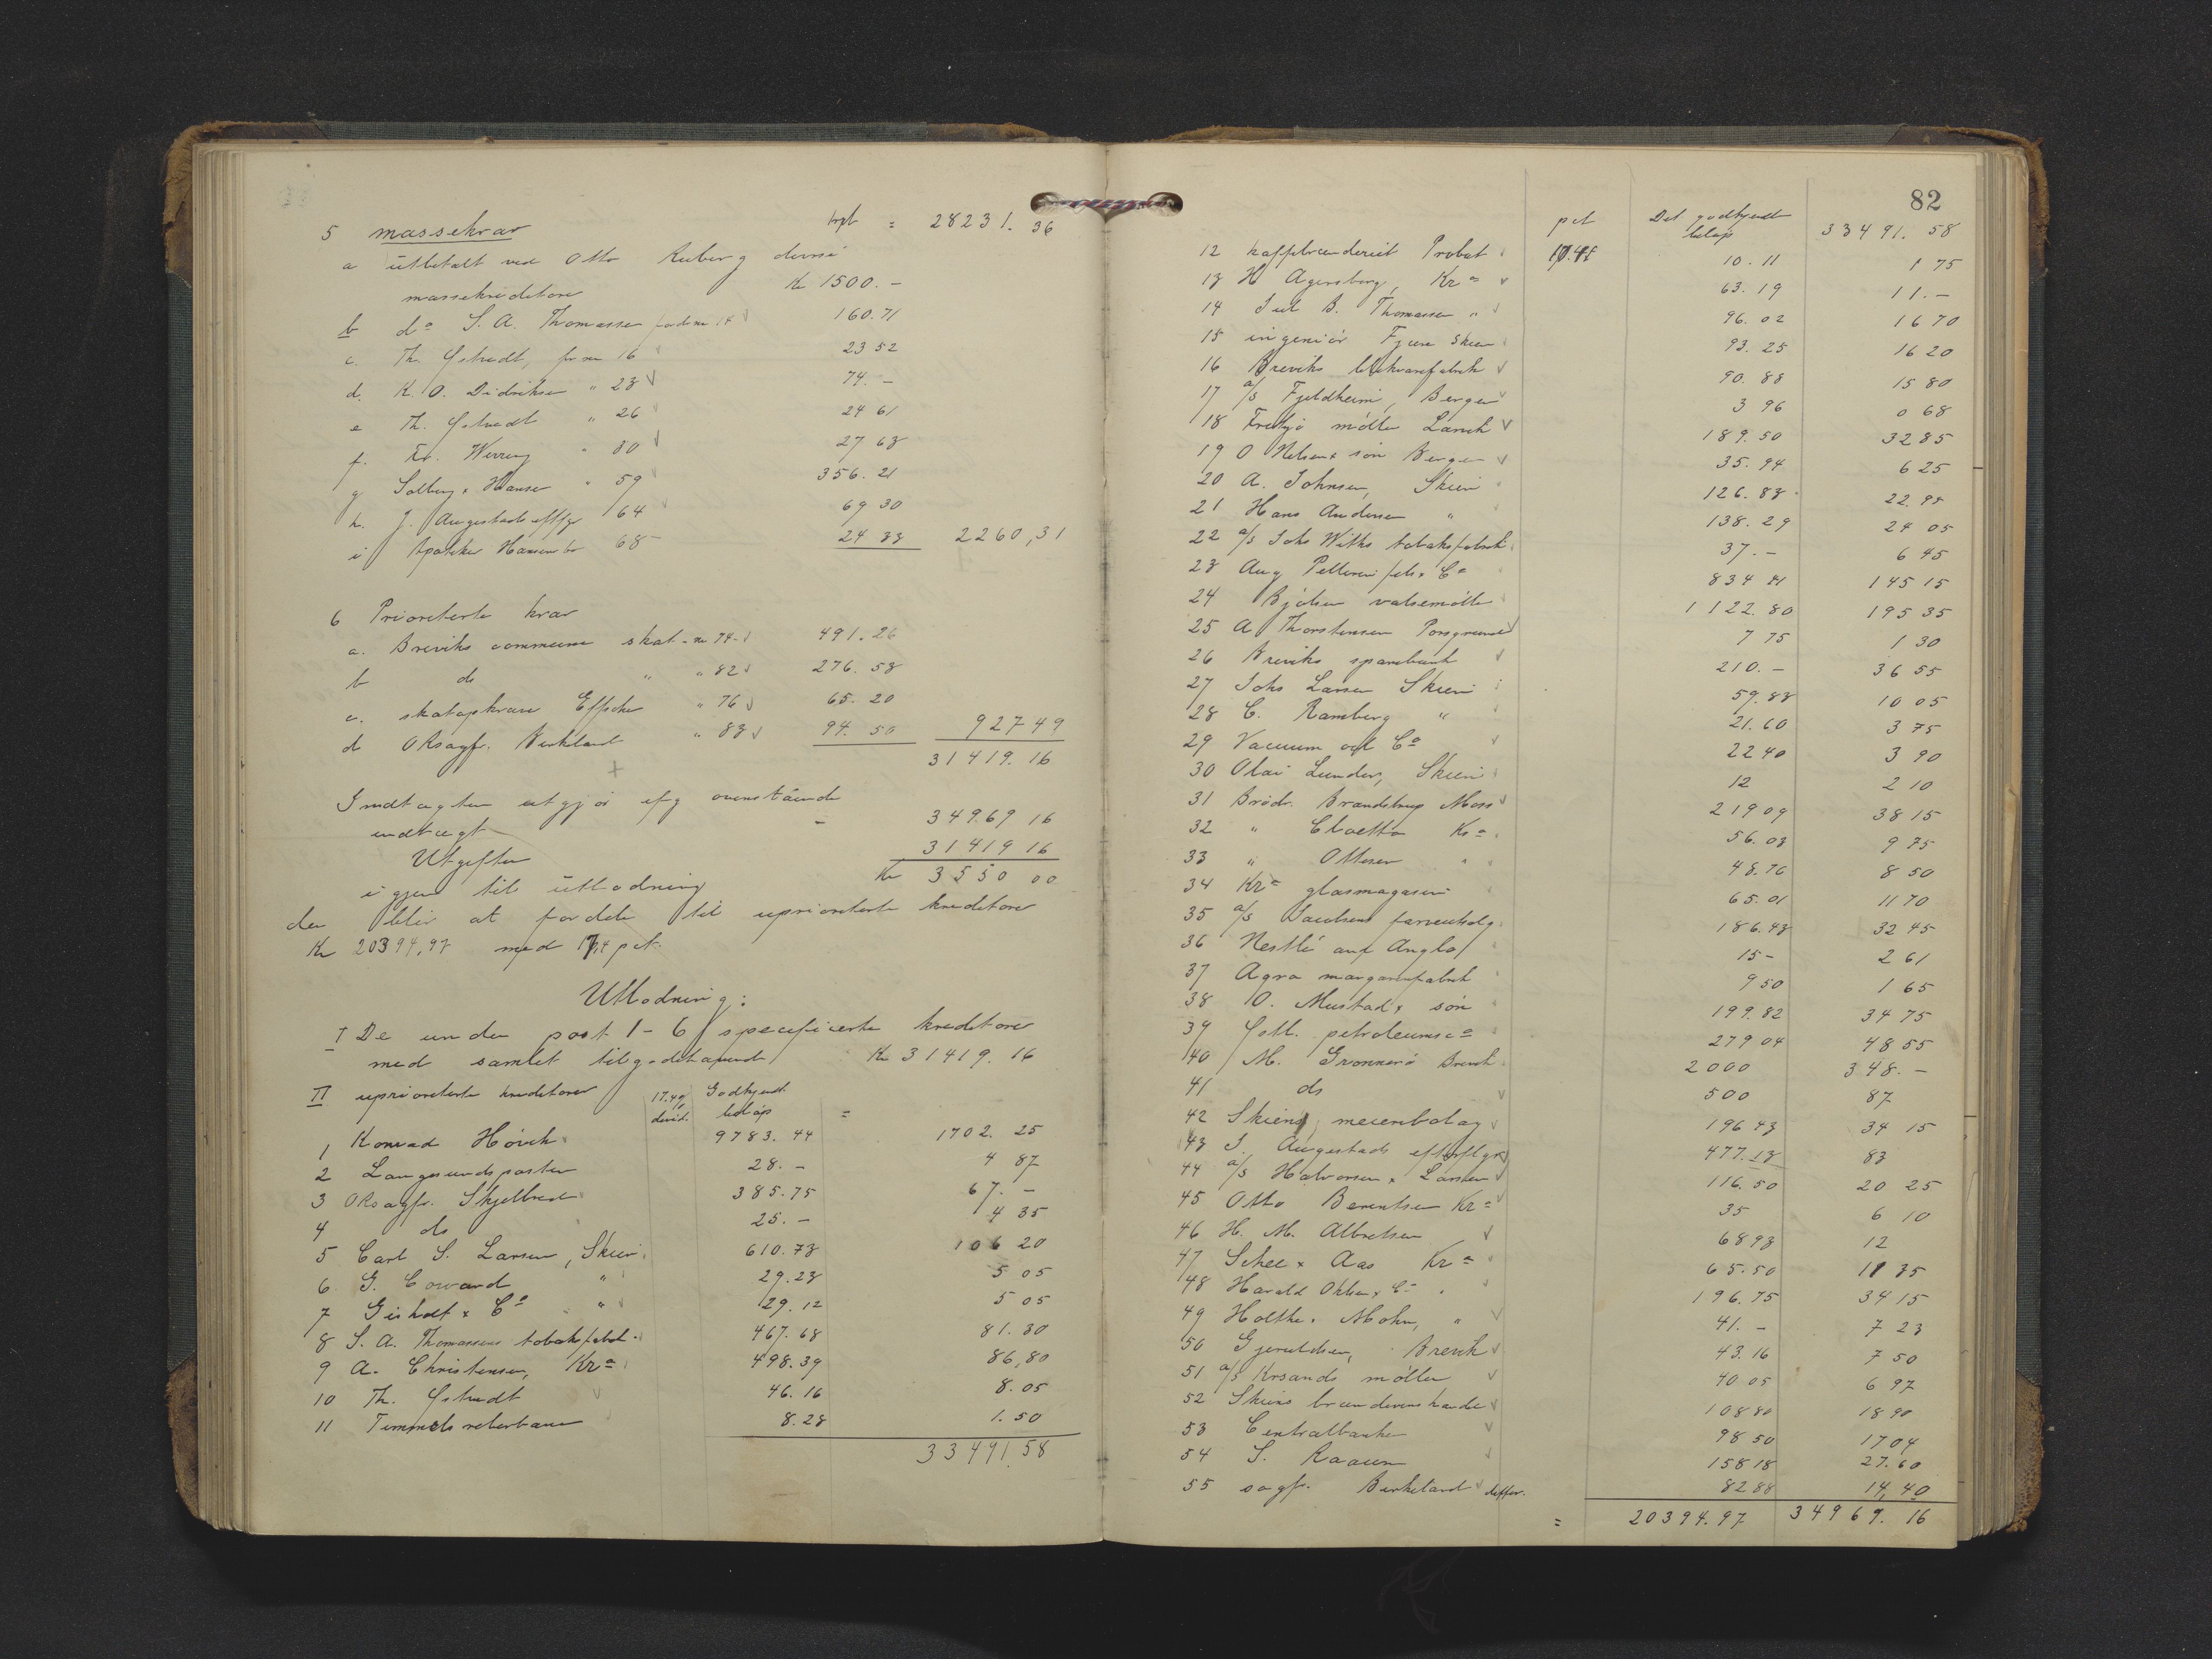 5 massekrav trspt = 28231. 36
a utbetalt ved Otto Auberg diverse
massekreditorer Kr 1500. -
b do S. A. Thomassen fordr nr 14 160.71
c. Th. Ystvedt, for nr 16 23 52
d. K. O. Didriksen " 23 74. -
e Th. Ystvedt " 26 24 61
f. Kr. Werring " 30 27 63
g Solberg & Hansen " 59 356. 21
h. J. Augestads eftfgr 64 69 30
i Apoteker Hansen bo 68 24 33 2260,31
6 Prioriterte krav
a. Breviks commune skat - nr 74 - 491. 26
b do " " 82 276. 53
c. skatopkræver Effsche " 76 65. 20
d ORsagfr. Birkeland " 83 94. 50 927 49
31419. 16
Indtægten utgjør ifg ovenstående
indtægt - 34969 16
Utgifter 31419 16
igjen til utlodning Kr 3550 00
der blir at fordele til uprioriterte kreditorer
Kr 20394,97 med 17,4 pct.
Utlodning:
I De under post 1 - 6 specificerte kreditorer
med samlet tilgodehavende Kr 31419. 16
II uprioriterte kreditorer 17.4% divid. Godkjendt beløp =
1 Konrad Hövik 9783. 44 1702. 25
2 Langesundsposten 28. - 4 87
3 ORsagfr. Skjelbred 385.75 67. -
4 do 25. - 4 35
5 Carl S. Larsen, Skien 610.73 106 20
6 G. Coward " 29.23 5 05
7 Gisholt & Co " 29.12 5 05
8 S. A. Thomassens tobaksfabrik 467.68 81.30
9 A. Christensen, Kra 498.39 86,80
10 Th. Ystvedt 46.16 8.05
11 Timmels reberbane 8.28 1.50
33491.58
82
pct Det godkjendt beløp 33491. 58
12 kaffebrænderiet Probat 17.4% 10.11 1 75
13 H Agersborg, Kra 63.19 11. -
14 Jul B. Thomassen " 96.02 16 70
15 ingeniör Fjære Skien 93.25 16 20
16 Breviks blikvarefabrik 90.88 15 80
17 a/s Fjeldheim, Bergen 3 96 0 68
18 Fritzö mölle Larvik 189.50 32 85
19 O Nilsen & sön Bergen 35.94 6 25
20 A. Johnsen, Skien 126.83 22.95
21 Hans Andersen " 138.29 24 05
22 a/s Johs Withs tobaksfabrik 37. - 6 45
23 Aug Pellerin fils & Co 834 41 145 15
24 Bjölsen valsemölle 1122.80 195 35
25 A Thorstensen Porsgrund 7 75 1 30
26 Breviks sparebank 210. - 36 55
27 Johs Larsen Skien 59.83 10 05
28 C. Ramberg " 21.60 3 75
29 Vacuum oil Co 22 40 3 90
30 Olai Lunder, Skien 12 2 10
31 Brödr. Brandstrup Moss 219 09 38 15
32 " Cloetta Kra 56.03 9 75
33 " Ottesen " 48.76 8 50
34 Kra glasmagasin 65.01 11 70
35 a/s Jacobsens farvehdlg. 186.43 32 45
36 Nestlé and Anglo 15 - 2 61
37 Agra margarinfabrik 9 50 1 65
38 O. Mustad & sön 199.82 34 75
39 Östl. petroleumsco 279 04 48 55
40 M. Grommerö Brevik 2000 348. -
41 do 500 87
42 Skiens meieribolag 196 43 34 15
43 J. Augestads efterflgr 477.13 83
44 a/s Halvorsen & Larsen 116.50 20 25
45 Otto Berentsen Kra 35 6 10
46 H. M. Albretsen 68 93 12
47 Schee & Aas Kra 65.50 11 35
48 Harald Ohlsen & Co " 196.75 34 15
49 Holthe & Mohn, " 41. - 7 23
50 Gjeruldsen, Brevik 43.16 7 50
51 a/s Krsands mölle 40 05 6 97
52 Skiens brændevinshandel 108 80 18 90
53 Centralbanken 98 50 17 04
54 S. Raaum 158 18 27.60
55 sagfr. Birkeland differ. 82 88 14,40
= 20394.97 34969. 16